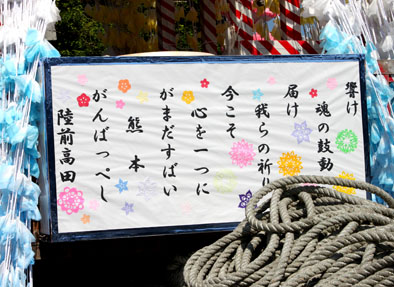 響け
魂の鼓動
届け
我らの祈り
今こそ
心を一つに
がまだすばい
熊本
がんばっぺし
陸前高田